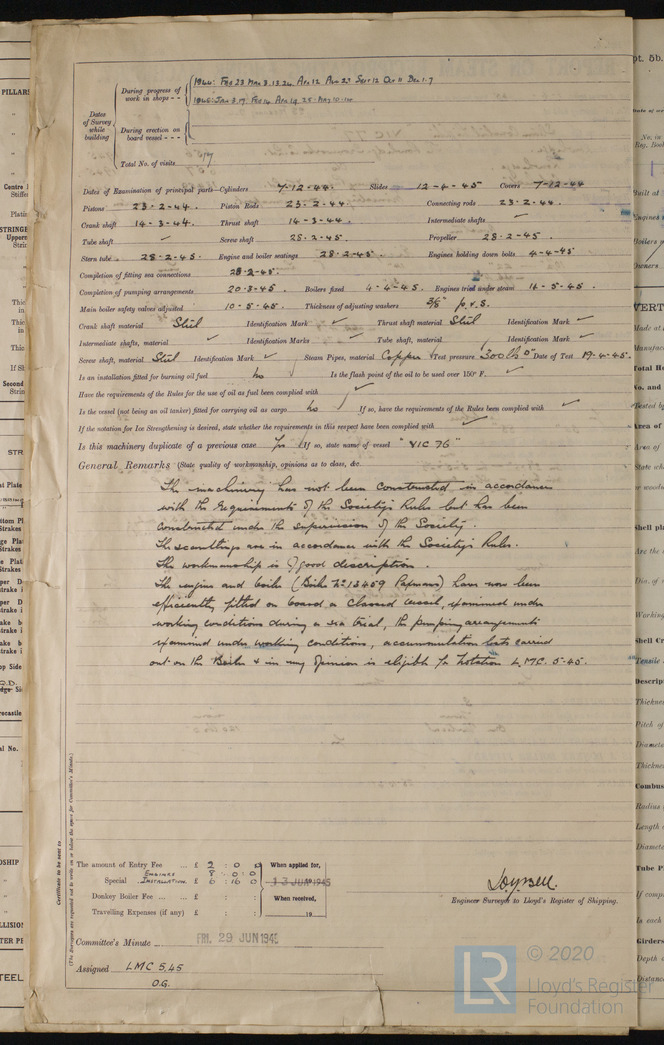 1944: Feb 23 Mar 3.13.24 Apr 12 Aug 29 Sept 12 Oct 11 Dec 1.7
During progress of work in shops - -
1945: Jan 3.19. Feb 14 Apr 19.25. May 10.
Dates of Survey while building
During erection on board vessel - - -
Total No. of visits
Dates of Examination of principal parts—Cylinders 7-12-44. Slides 12-4-45 Covers 7-12-44
Pistons 23-2-44. Piston Rods 23-2-44. Connecting rods 23-2-44.
Crank shaft 14-3-44. Thrust shaft 14-3-44. Intermediate shafts ✓
Tube shaft ✓ Screw shaft 28-2-45. Propeller 28-2-45.
Stern tube 28-2-45. Engine and boiler seatings 28-2-45. Engines holding down bolts 4-4-45
Completion of fitting sea connections 28-2-45.
Completion of pumping arrangements 20-3-45. Boilers fixed 4-4-45. Engines tried under steam 14-5-45.
Main boiler safety valves adjusted 10-5-45. Thickness of adjusting washers 3/8" p.&s.
Crank shaft material Steel Identification Mark ✓ Thrust shaft material Steel Identification Mark ✓
Intermediate shafts, material ✓ Identification Marks ✓ Tube shaft, material Identification Mark ✓
Screw shaft, material Steel Identification Mark ✓ Steam Pipes, material Copper Test pressure 300 lb □" Date of Test 19-4-45.
Is an installation fitted for burning oil fuel No Is the flash point of the oil to be used over 150° F. ✓
Have the requirements of the Rules for the use of oil as fuel been complied with ✓
Is the vessel (not being an oil tanker) fitted for carrying oil as cargo No If so, have the requirements of the Rules been complied with ✓
If the notation for Ice Strengthening is desired, state whether the requirements in this respect have been complied with ✓
Is this machinery duplicate of a previous case Yes If so, state name of vessel "VIC 76"
General Remarks (State quality of workmanship, opinions as to class, &c.
The machinery has not been constructed in accordance
with the Requirements of the Society's Rules but has been
constructed under the supervision of the Society.
The scantlings are in accordance with the Society's Rules.
The workmanship is of good description.
The engine and boiler (Boiler No 13459 ) have now been
efficiently fitted on board a classed vessel, examined under
working conditions during a sea trial, the pumping arrangements
examined under working conditions, accumulation tests carried
out on the Boiler & in my opinion is eligible for Notation L.M.C. 5-45.
Certificate to be sent to
(The Surveyors are requested not to write on or below the space for Committee's Minute.)
The amount of Entry Fee ... £ 2 : 0 : 0 When applied for,
Engines 8 : 0 : 0
Special Installation £ 6 : 16 : 0 13 JUN 1945
Donkey Boiler Fee ... £ : : When received,
Travelling Expenses (if any) £ : : 19
Engineer Surveyor to Lloyd's Register of Shipping.
Committee's Minute FRI. 29 JUN 1945
Assigned LMC 5,45
O.G.
© 2020
LR
Lloyd's Register
Foundation